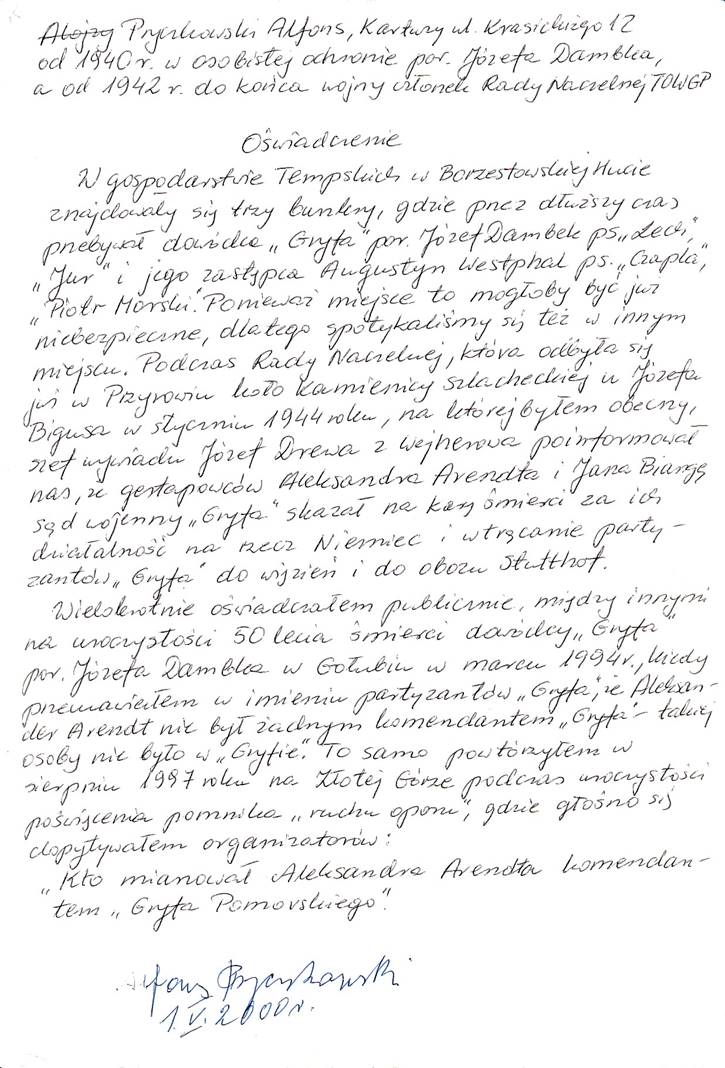 Alojzy Pryczkowski Alfons, Kartuzy ul. Krasickiego 12
od 1940 r. w osobistej ochronie por. Józefa Dambka,
a od 1942 r. do końca wojny członek Rady Naczelnej TOWGP
Oświadczenie
W gospodarstwie Tempskich w Borzestowskiej Hucie
znajdowały się trzy bunkry, gdzie przez dłuższy czas
przebywał dowódca „Gryfa" por. Józef Dambek ps. „Lech",
„Jur" i jego zastępca Augustyn Westphal ps. „Czapla",
„Piotr Morski". Ponieważ miejsce to mogłoby być już
niebezpieczne, dlatego spotykaliśmy się też w innym
miejscu. Podczas Rady Naczelnej, która odbyła się
już w Przyrowiu koło Kamienicy szlacheckiej u Józefa
Bigusa w styczniu 1944 roku, na której byłem obecny,
szef wywiadu Józef Drewa z Wejherowa poinformował
nas, że gestapowców Aleksandra Arendta i Jana Biangę
sąd wojenny „Gryfa" skazał na karę śmierci za ich
działalność na rzecz Niemiec i wtrącanie party-
zantów „Gryfa" do więzień i do obozu Stutthof.
Wielokrotnie oświadczałem publicznie, między innymi
na uroczystości 50 lecia śmierci dowódcy „Gryfa"
por. Józefa Dambka w Gołubiu w marcu 1994 r., kiedy
przemawiałem w imieniu partyzantów „Gryfa", że Aleksan-
der Arendt nie był żadnym komendantem „Gryfa" – takiej
osoby nie było w „Gryfie". To samo powtórzyłem w
sierpniu 1997 roku na Złotej Górze podczas uroczystości
poświęcenia pomnika „ruchu oporu", gdzie głośno się
dopytywałem organizatorów:
„Kto mianował Aleksandra Arendta komendan-
tem „Gryfa Pomorskiego".
Alfons Pryczkowski
1.V.2000r.